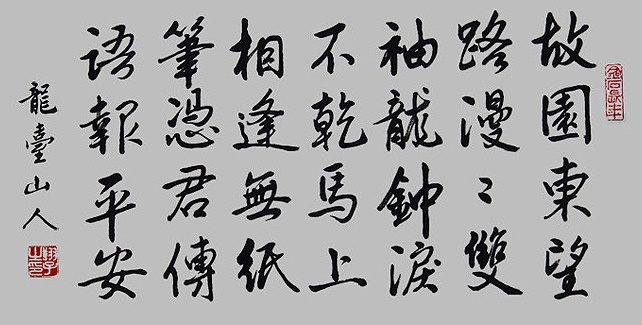 故園東望
路漫〻雙
袖龍鐘淚
不乾馬上
相逢無紙
筆憑君傳
語報平安
龍臺山人